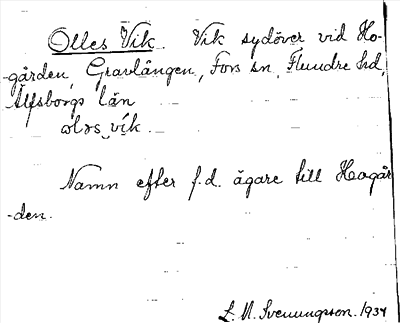 Olles Vik. Vik sydöver vid Ho-
gården, Gravlången, Fors sn, Flundre hd,
Älfsborgs län
ɷlɔs vik
Namn efter f.d. ägare till Hogår
-den.
L. M. Svenungsson. 1934